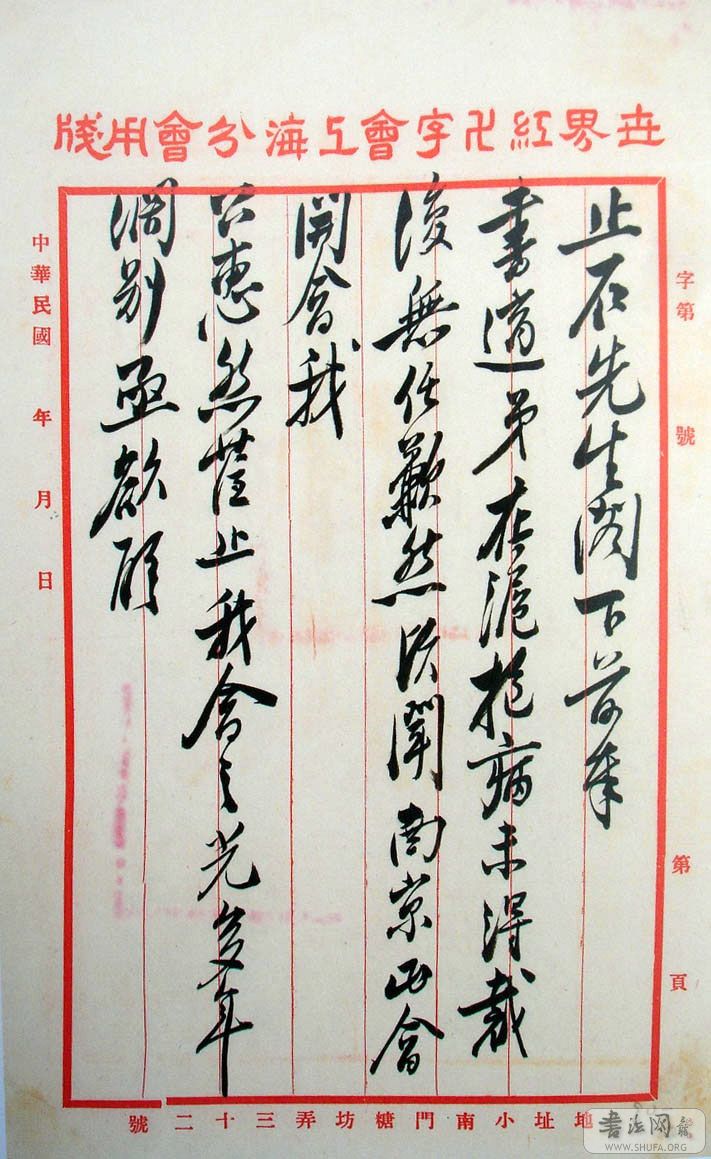 世界紅卍字會上海分會用牋
字第 號 第 頁
止石先生閣下前奉
書適弟在滬抱病未得裁
後無任歉然頃聞南京正會
開會我
公惠然蒞止我會之光多年
濶别亟欲
中華民國 年 月 日
地址小南門糖坊弄三十二號
書法网
WWW.SHUFA.ORG